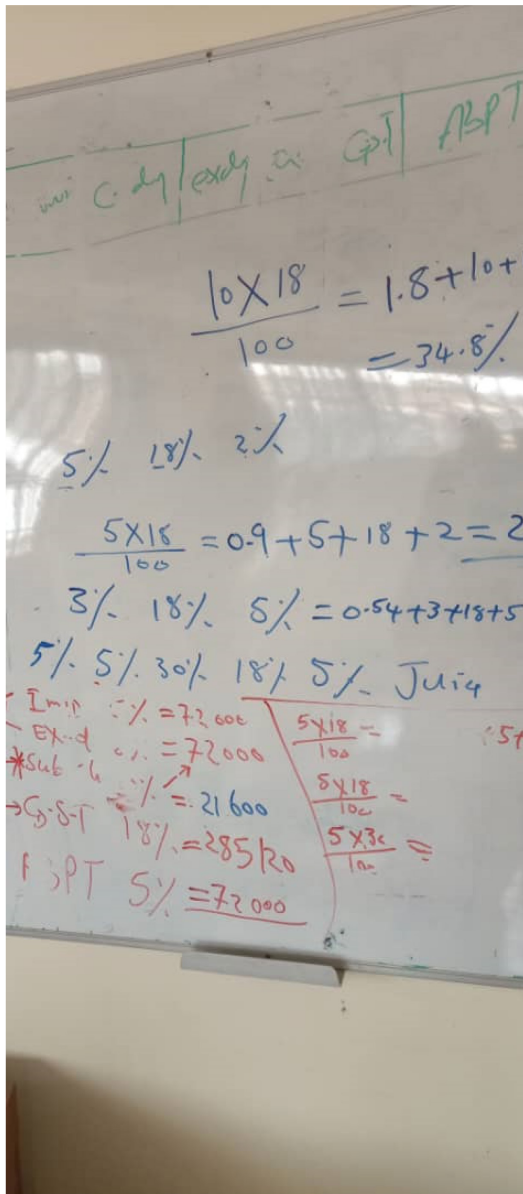 C. dy exdy GST ABPT
10 X 18 / 100 = 1.8 + 10 +
= 34.8%
5% 18% 2%
5 X 18 / 100 = 0.9 + 5 + 18 + 2 = 2
3% 18% 5% = 0.54 + 3 + 18 + 5
5% 5% 30% 18% 5% Juia
% = 72000
Ex.d = 72000
*Sub % = 21600
→ G.S.T 18% = 285120
PT 5% = 72000
5 X 18 / 100 =
5 X 18 / 100 =
5 X 30 / 100 =
5+